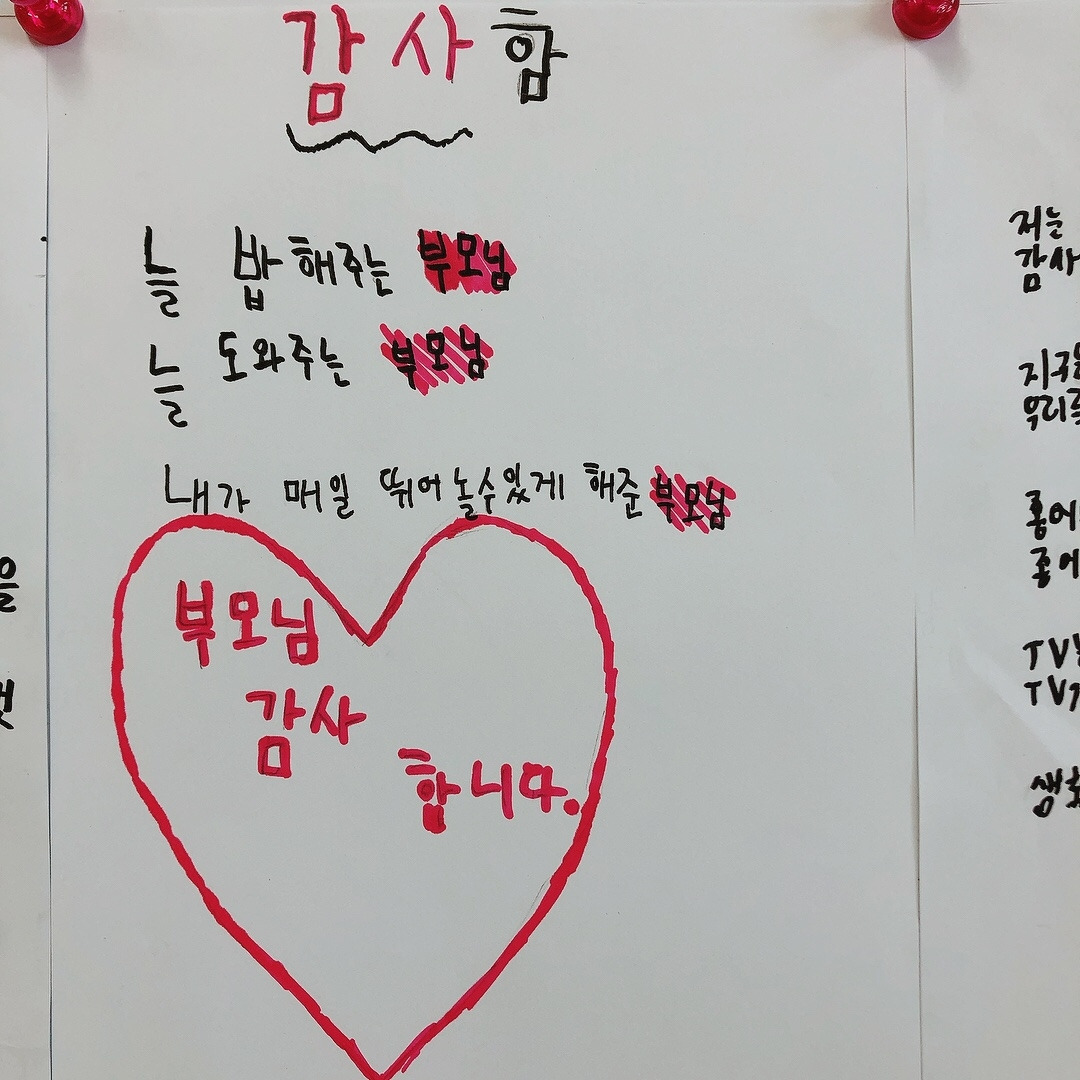 감사함
늘 밥해주는 부모님
늘 도와주는 부모님
내가 매일 뛰어놀수있게 해준 부모님
부모님
감사
합니다.
을
저는
감사
지구
우리
종이
종이
TV
TV
생